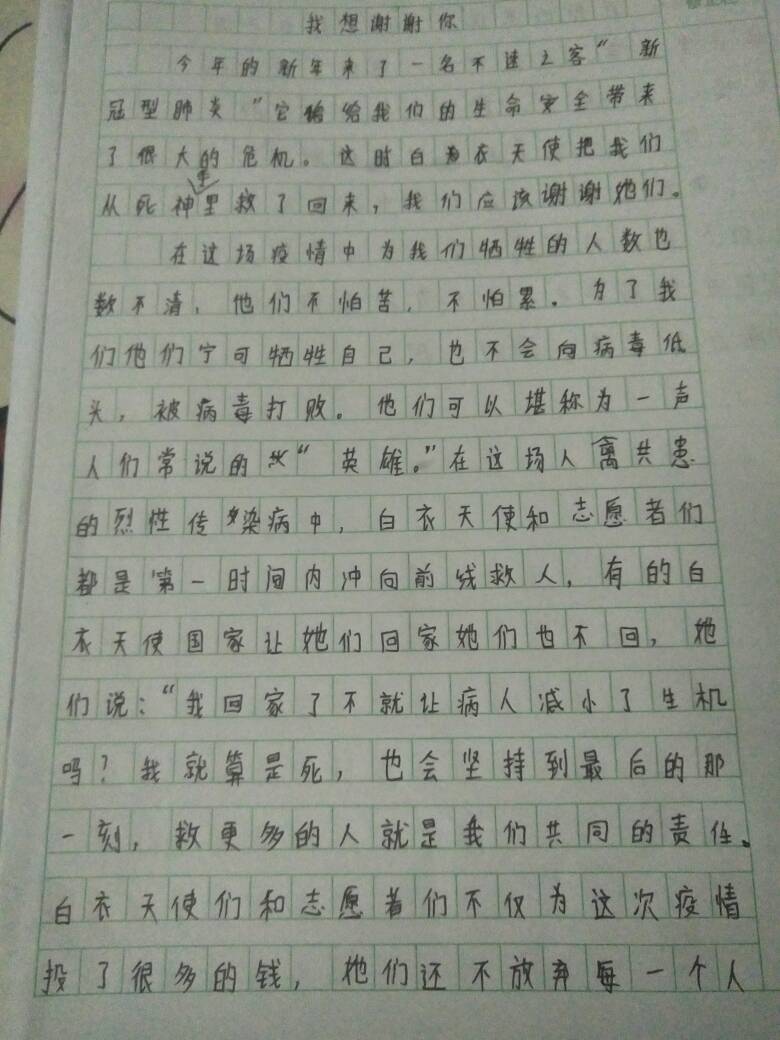 我想谢谢你
今年的新年来了一名不速之客“新
冠型肺炎”它给我们的生命安全带来
了很大的危机。这时白衣天使把我们
从死神手里救了回来，我们应该谢谢她们。
在这场疫情中为我们牺牲的人数也
数不清，他们不怕苦，不怕累。为了我
们他们宁可牺牲自己，也不会向病毒低
头，被病毒打败。他们可以堪称为一声
人们常说的“英雄。”在这场人禽共患
的烈性传染病中，白衣天使和志愿者们
都是第一时间内冲向前线救人，有的白
衣天使国家让她们回家她们也不回，她
们说：“我回家了不就让病人减小了生机
吗？我就算是死，也会坚持到最后的那
一刻，救更多的人就是我们共同的责任。
白衣天使们和志愿者们不仅为这次疫情
投了很多的钱，她们还不放弃每一个人